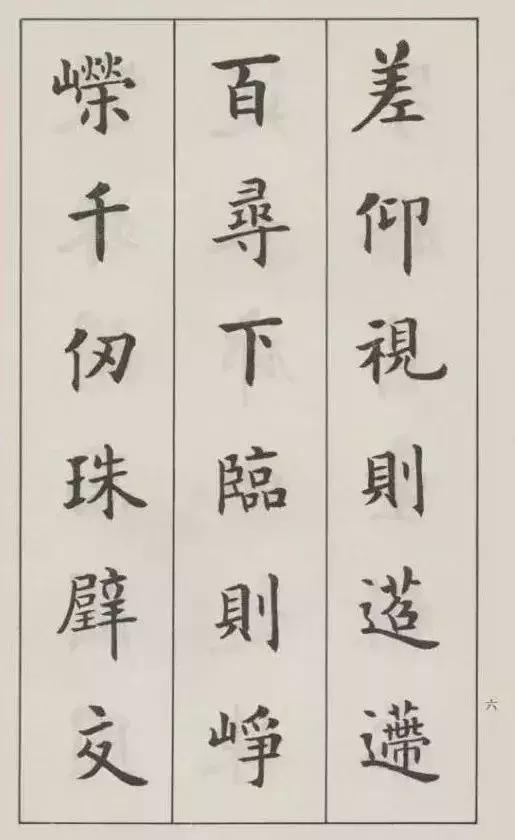 差仰視則迢遰
百尋下臨則崢
嶸千仞珠璧交
六